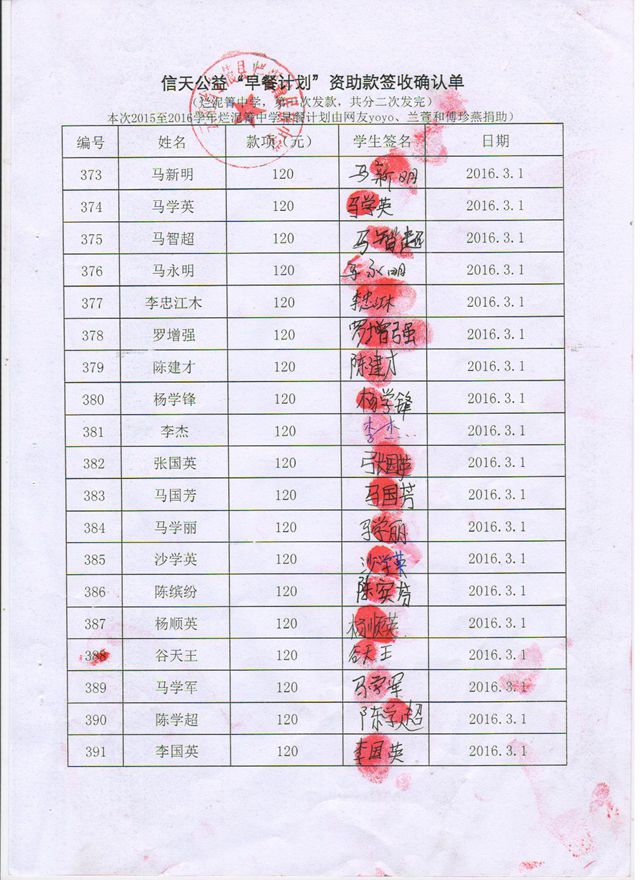 信天公益“早餐计划”资助款签收确认单
（烂泥箐中学，第一次发款，共分二次发完）
本次2015至2016学年烂泥箐中学早餐计划由网友yoyo、兰萱和傅珍燕捐助）
编号 姓名 款项（元） 学生签名 日期
373 马新明 120 马新明 2016.3.1
374 马学英 120 马学英 2016.3.1
375 马智超 120 马智超 2016.3.1
376 马永明 120 马永明 2016.3.1
377 李忠江木 120 李忠江木 2016.3.1
378 罗增强 120 罗增强 2016.3.1
379 陈建才 120 陈建才 2016.3.1
380 杨学锋 120 杨学锋 2016.3.1
381 李杰 120 李杰 2016.3.1
382 张国英 120 张国英 2016.3.1
383 马国芳 120 马国芳 2016.3.1
384 马学丽 120 马学丽 2016.3.1
385 沙学英 120 沙学英 2016.3.1
386 陈缤纷 120 陈宾芬 2016.3.1
387 杨顺英 120 杨顺英 2016.3.1
388 谷天王 120 谷天王 2016.3.1
389 马学军 120 马学军 2016.3.1
390 陈学超 120 陈学超 2016.3.1
391 李国英 120 李国英 2016.3.1